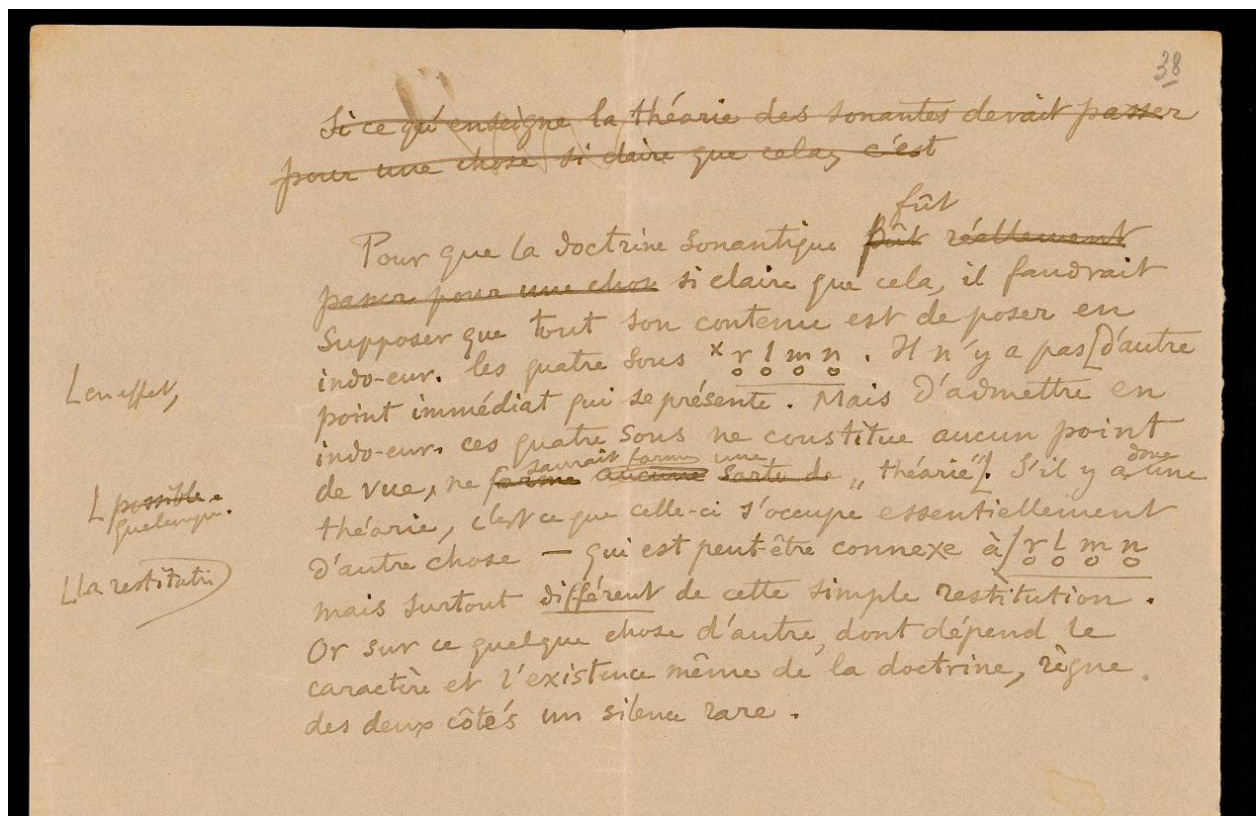 38
Si ce qu'enseigne la théorie des sonantes devait passer
pour une chose si claire que cela, c'est
fût
Pour que la doctrine sonantique fût réellement
passer pour une chose si claire que cela, il faudrait
supposer que tout son contenu est de poser en
indo-eur. les quatre sons × r̥ l̥ m̥ n̥ . Il n'y a pas [d'autre
⌊en effet,
point immédiat qui se présente. Mais d'admettre en
indo-eur. ces quatre sons ne constitue aucun point
saurait former une donc
de vue, ne forme aucune sorte de „ théorie"⌊. S'il y a une
⌊possible.
quelconque.
théorie, c'est ce que celle-ci s'occupe essentiellement
d'autre chose — qui est peut-être connexe à ⌊r̥ l̥ m̥ n̥
⌊la restitution
mais surtout différent de cette simple restitution.
Or sur ce quelque chose d'autre, dont dépend le
caractère et l'existence même de la doctrine, règne
des deux côtés un silence rare.